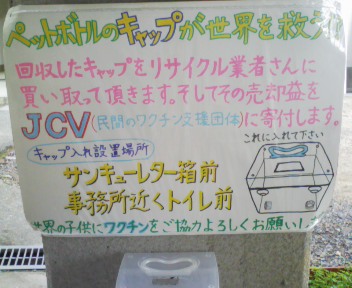 ペットボトルのキャップが世界を救う!
回収したキャップをリサイクル業者さんに
買い取って頂きます。そしてその売却益を
JCV(民間のワクチン支援団体)に寄付します。
キャップ入れ設置場所
これに入れて下さい
サンキューレター箱前
事務所近くトイレ前
世界の子供にワクチンをご協力よろしくお願いします